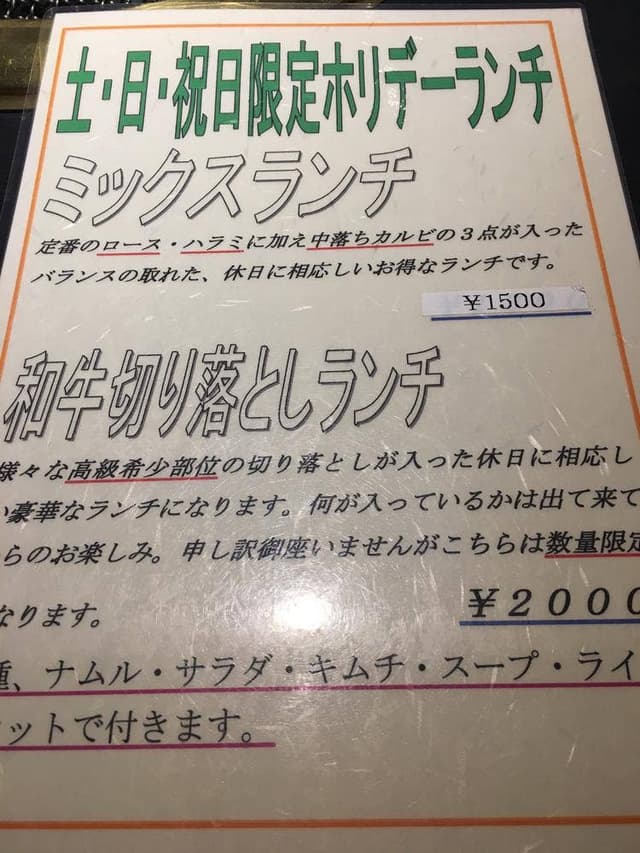 土・日・祝日限定ホリデーランチ
ミックスランチ
定番のロース・ハラミに加え中落ちカルビの３点が入った
バランスの取れた、休日に相応しいお得なランチです。
￥1500
和牛切り落としランチ
様々な高級希少部位の切り落としが入った休日に相応し
い豪華なランチになります。何が入っているかは出て来て
らのお楽しみ。申し訳御座いませんがこちらは数量限定
なります。
￥２０００
種、ナムル・サラダ・キムチ・スープ・ライ
ットで付きます。